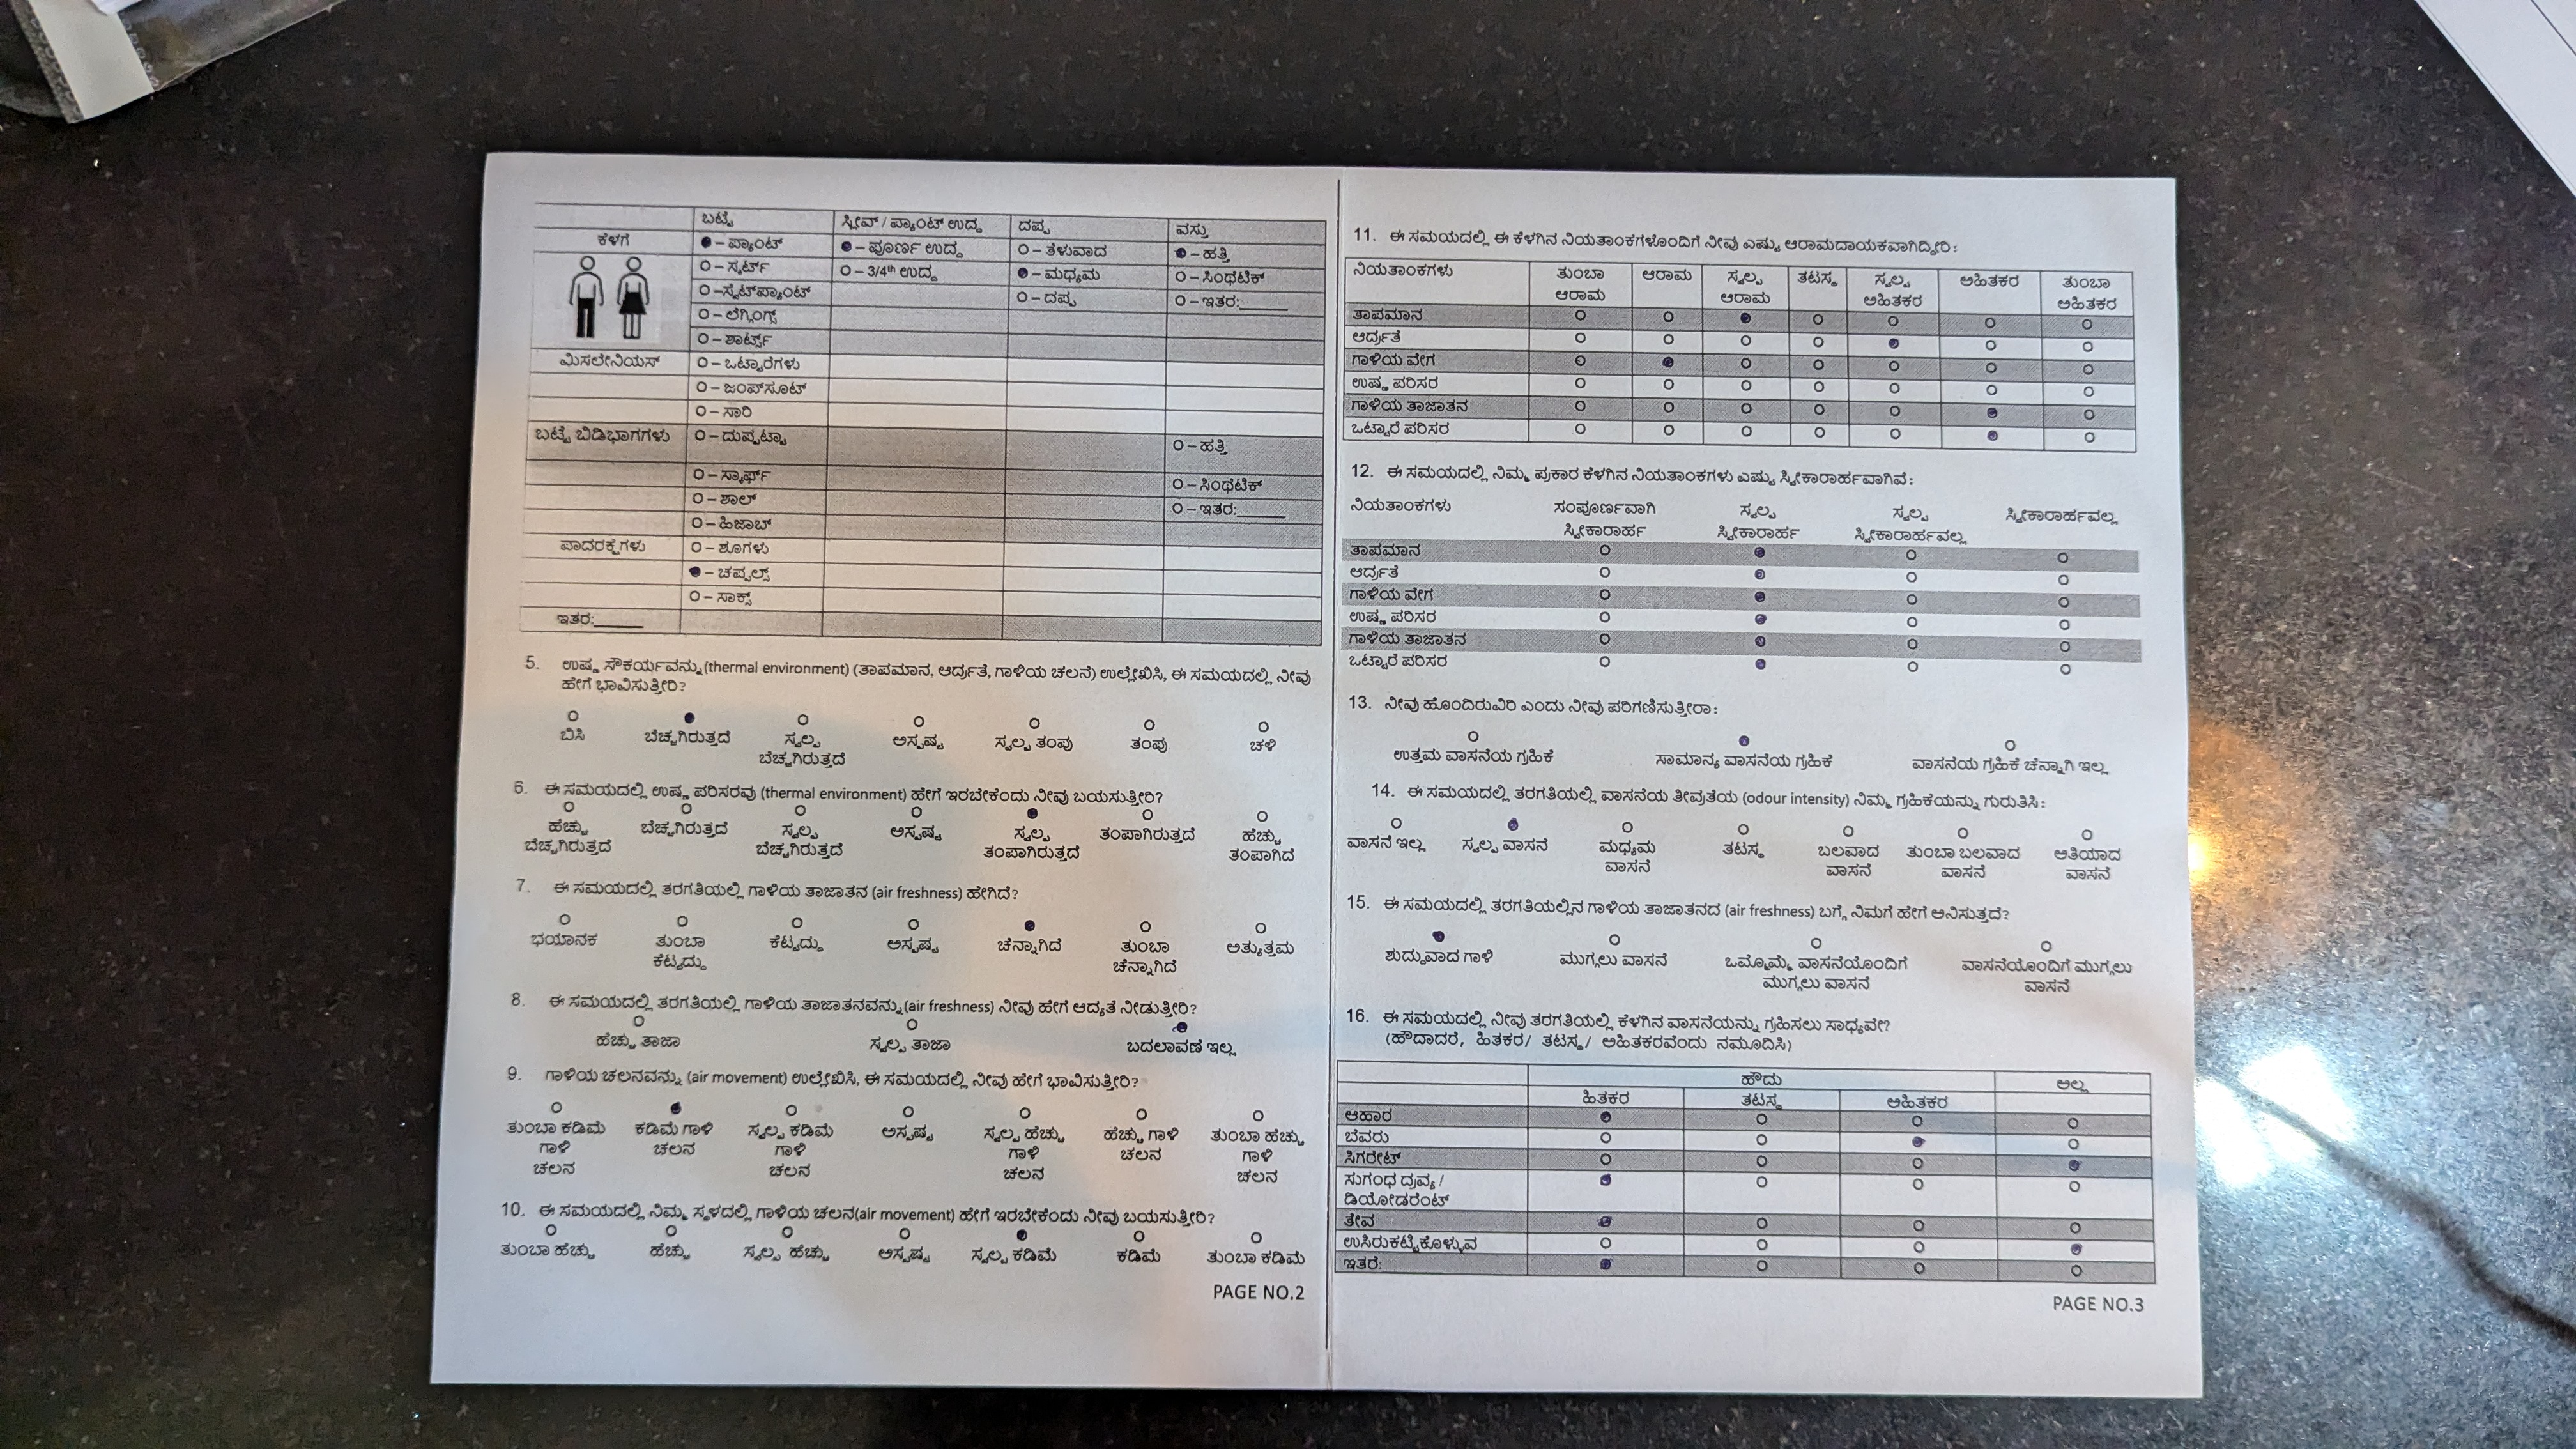 ಬಟ್ಟೆ ಸ್ಲೀವ್ / ಪ್ಯಾಂಟ್ ಉದ್ದ ದಪ್ಪ ವಸ್ತು
ಕೆಳಗೆ ● – ಪ್ಯಾಂಟ್ ● – ಪೂರ್ಣ ಉದ್ದ O – ತೆಳುವಾದ ● – ಹತ್ತಿ
O – ಸ್ಕರ್ಟ್ O – 3/4th ಉದ್ದ ● – ಮಧ್ಯಮ O – ಸಿಂಥೆಟಿಕ್
O –ಸ್ವೆಟ್‌ಪ್ಯಾಂಟ್ O – ದಪ್ಪ O – ಇತರ:______
O – ಲೆಗ್ಗಿಂಗ್ಸ್
O – ಶಾರ್ಟ್ಸ್
ಮಿಸಲೇನಿಯಸ್ O – ಒಟ್ಟಾರೆಗಳು
O – ಜಂಪ್‌ಸೂಟ್
O – ಸಾರಿ
ಬಟ್ಟೆ ಬಿಡಿಭಾಗಗಳು O – ದುಪ್ಪಟ್ಟಾ O – ಹತ್ತಿ
O – ಸ್ಕಾರ್ಫ್ O – ಸಿಂಥೆಟಿಕ್
O – ಶಾಲ್ O – ಇತರ:______
O – ಹಿಜಾಬ್
ಪಾದರಕ್ಷೆಗಳು O – ಶೂಗಳು
● – ಚಪ್ಪಲ್ಸ್
O – ಸಾಕ್ಸ್
ಇತರ:______
5. ಉಷ್ಣ ಸೌಕರ್ಯವನ್ನು (thermal environment) (ತಾಪಮಾನ, ಆರ್ದ್ರತೆ, ಗಾಳಿಯ ಚಲನೆ) ಉಲ್ಲೇಖಿಸಿ, ಈ ಸಮಯದಲ್ಲಿ ನೀವು
ಹೇಗೆ ಭಾವಿಸುತ್ತೀರಿ?
ಬಿಸಿ ಬೆಚ್ಚಗಿರುತ್ತದೆ ಸ್ವಲ್ಪ ಅಸ್ಪಷ್ಟ ಸ್ವಲ್ಪ ತಂಪು ತಂಪು ಚಳಿ
ಬೆಚ್ಚಗಿರುತ್ತದೆ
6. ಈ ಸಮಯದಲ್ಲಿ ಉಷ್ಣ ಪರಿಸರವು (thermal environment) ಹೇಗೆ ಇರಬೇಕೆಂದು ನೀವು ಬಯಸುತ್ತೀರಿ?
ಹೆಚ್ಚು ಬೆಚ್ಚಗಿರುತ್ತದೆ ಸ್ವಲ್ಪ ಅಸ್ಪಷ್ಟ ಸ್ವಲ್ಪ ತಂಪಾಗಿರುತ್ತದೆ ಹೆಚ್ಚು
ಬೆಚ್ಚಗಿರುತ್ತದೆ ಬೆಚ್ಚಗಿರುತ್ತದೆ ತಂಪಾಗಿರುತ್ತದೆ ತಂಪಾಗಿದೆ
7. ಈ ಸಮಯದಲ್ಲಿ ತರಗತಿಯಲ್ಲಿ ಗಾಳಿಯ ತಾಜಾತನ (air freshness) ಹೇಗಿದೆ?
ಭಯಾನಕ ತುಂಬಾ ಕೆಟ್ಟದ್ದು ಅಸ್ಪಷ್ಟ ಚೆನ್ನಾಗಿದೆ ತುಂಬಾ ಅತ್ಯುತ್ತಮ
ಕೆಟ್ಟದ್ದು ಚೆನ್ನಾಗಿದೆ
8. ಈ ಸಮಯದಲ್ಲಿ ತರಗತಿಯಲ್ಲಿ ಗಾಳಿಯ ತಾಜಾತನವನ್ನು (air freshness) ನೀವು ಹೇಗೆ ಆದ್ಯತೆ ನೀಡುತ್ತೀರಿ?
ಹೆಚ್ಚು ತಾಜಾ ಸ್ವಲ್ಪ ತಾಜಾ ಬದಲಾವಣೆ ಇಲ್ಲ
9. ಗಾಳಿಯ ಚಲನವನ್ನು (air movement) ಉಲ್ಲೇಖಿಸಿ, ಈ ಸಮಯದಲ್ಲಿ ನೀವು ಹೇಗೆ ಭಾವಿಸುತ್ತೀರಿ?
ತುಂಬಾ ಕಡಿಮೆ ಕಡಿಮೆ ಗಾಳಿ ಸ್ವಲ್ಪ ಕಡಿಮೆ ಅಸ್ಪಷ್ಟ ಸ್ವಲ್ಪ ಹೆಚ್ಚು ಹೆಚ್ಚು ಗಾಳಿ ತುಂಬಾ ಹೆಚ್ಚು
ಗಾಳಿ ಚಲನ ಗಾಳಿ ಗಾಳಿ ಚಲನ ಗಾಳಿ
ಚಲನ ಚಲನ ಚಲನ ಚಲನ
10. ಈ ಸಮಯದಲ್ಲಿ ನಿಮ್ಮ ಸ್ಥಳದಲ್ಲಿ ಗಾಳಿಯ ಚಲನ(air movement) ಹೇಗೆ ಇರಬೇಕೆಂದು ನೀವು ಬಯಸುತ್ತೀರಿ?
ತುಂಬಾ ಹೆಚ್ಚು ಹೆಚ್ಚು ಸ್ವಲ್ಪ ಹೆಚ್ಚು ಅಸ್ಪಷ್ಟ ಸ್ವಲ್ಪ ಕಡಿಮೆ ಕಡಿಮೆ ತುಂಬಾ ಕಡಿಮೆ
PAGE NO.2
11. ಈ ಸಮಯದಲ್ಲಿ ಈ ಕೆಳಗಿನ ನಿಯತಾಂಕಗಳೊಂದಿಗೆ ನೀವು ಎಷ್ಟು ಆರಾಮದಾಯಕವಾಗಿದ್ದೀರಿ:
ನಿಯತಾಂಕಗಳು ತುಂಬಾ ಆರಾಮ ಸ್ವಲ್ಪ ತಟಸ್ಥ ಸ್ವಲ್ಪ ಅಹಿತಕರ ತುಂಬಾ
ಆರಾಮ ಆರಾಮ ಅಹಿತಕರ ಅಹಿತಕರ
ತಾಪಮಾನ
ಆರ್ದ್ರತೆ
ಗಾಳಿಯ ವೇಗ
ಉಷ್ಣ ಪರಿಸರ
ಗಾಳಿಯ ತಾಜಾತನ
ಒಟ್ಟಾರೆ ಪರಿಸರ
12. ಈ ಸಮಯದಲ್ಲಿ ನಿಮ್ಮ ಪ್ರಕಾರ ಕೆಳಗಿನ ನಿಯತಾಂಕಗಳು ಎಷ್ಟು ಸ್ವೀಕಾರಾರ್ಹವಾಗಿವೆ:
ನಿಯತಾಂಕಗಳು ಸಂಪೂರ್ಣವಾಗಿ ಸ್ವಲ್ಪ ಸ್ವಲ್ಪ ಸ್ವೀಕಾರಾರ್ಹವಲ್ಲ
ಸ್ವೀಕಾರಾರ್ಹ ಸ್ವೀಕಾರಾರ್ಹ ಸ್ವೀಕಾರಾರ್ಹವಲ್ಲ
ತಾಪಮಾನ
ಆರ್ದ್ರತೆ
ಗಾಳಿಯ ವೇಗ
ಉಷ್ಣ ಪರಿಸರ
ಗಾಳಿಯ ತಾಜಾತನ
ಒಟ್ಟಾರೆ ಪರಿಸರ
13. ನೀವು ಹೊಂದಿರುವಿರಿ ಎಂದು ನೀವು ಪರಿಗಣಿಸುತ್ತೀರಾ:
ಉತ್ತಮ ವಾಸನೆಯ ಗ್ರಹಿಕೆ ಸಾಮಾನ್ಯ ವಾಸನೆಯ ಗ್ರಹಿಕೆ ವಾಸನೆಯ ಗ್ರಹಿಕೆ ಚೆನ್ನಾಗಿ ಇಲ್ಲ
14. ಈ ಸಮಯದಲ್ಲಿ ತರಗತಿಯಲ್ಲಿ ವಾಸನೆಯ ತೀವ್ರತೆಯ (odour intensity) ನಿಮ್ಮ ಗ್ರಹಿಕೆಯನ್ನು ಗುರುತಿಸಿ:
ವಾಸನೆ ಇಲ್ಲ ಸ್ವಲ್ಪ ವಾಸನೆ ಮಧ್ಯಮ ತಟಸ್ಥ ಬಲವಾದ ತುಂಬಾ ಬಲವಾದ ಅತಿಯಾದ
ವಾಸನೆ ವಾಸನೆ ವಾಸನೆ ವಾಸನೆ
15. ಈ ಸಮಯದಲ್ಲಿ ತರಗತಿಯಲ್ಲಿನ ಗಾಳಿಯ ತಾಜಾತನದ (air freshness) ಬಗ್ಗೆ ನಿಮಗೆ ಹೇಗೆ ಅನಿಸುತ್ತದೆ?
ಶುದ್ದುವಾದ ಗಾಳಿ ಮುಗ್ಗಲು ವಾಸನೆ ಒಮ್ಮೊಮ್ಮೆ ವಾಸನೆಯೊಂದಿಗೆ ವಾಸನೆಯೊಂದಿಗೆ ಮುಗ್ಗಲು
ಮುಗ್ಗಲು ವಾಸನೆ ವಾಸನೆ
16. ಈ ಸಮಯದಲ್ಲಿ ನೀವು ತರಗತಿಯಲ್ಲಿ ಕೆಳಗಿನ ವಾಸನೆಯನ್ನು ಗ್ರಹಿಸಲು ಸಾಧ್ಯವೇ?
(ಹೌದಾದರೆ, ಹಿತಕರ/ ತಟಸ್ಥ/ ಅಹಿತಕರವೆಂದು ನಮೂದಿಸಿ)
ಹೌದು ಅಲ್ಲ
ಹಿತಕರ ತಟಸ್ಥ ಅಹಿತಕರ
ಆಹಾರ
ಬೆವರು
ಸಿಗರೇಟ್
ಸುಗಂಧ ದ್ರವ್ಯ /
ಡಿಯೋಡರೆಂಟ್
ತೇವ
ಉಸಿರುಕಟ್ಟಿಕೊಳ್ಳುವ
ಇತರೆ:
PAGE NO.3